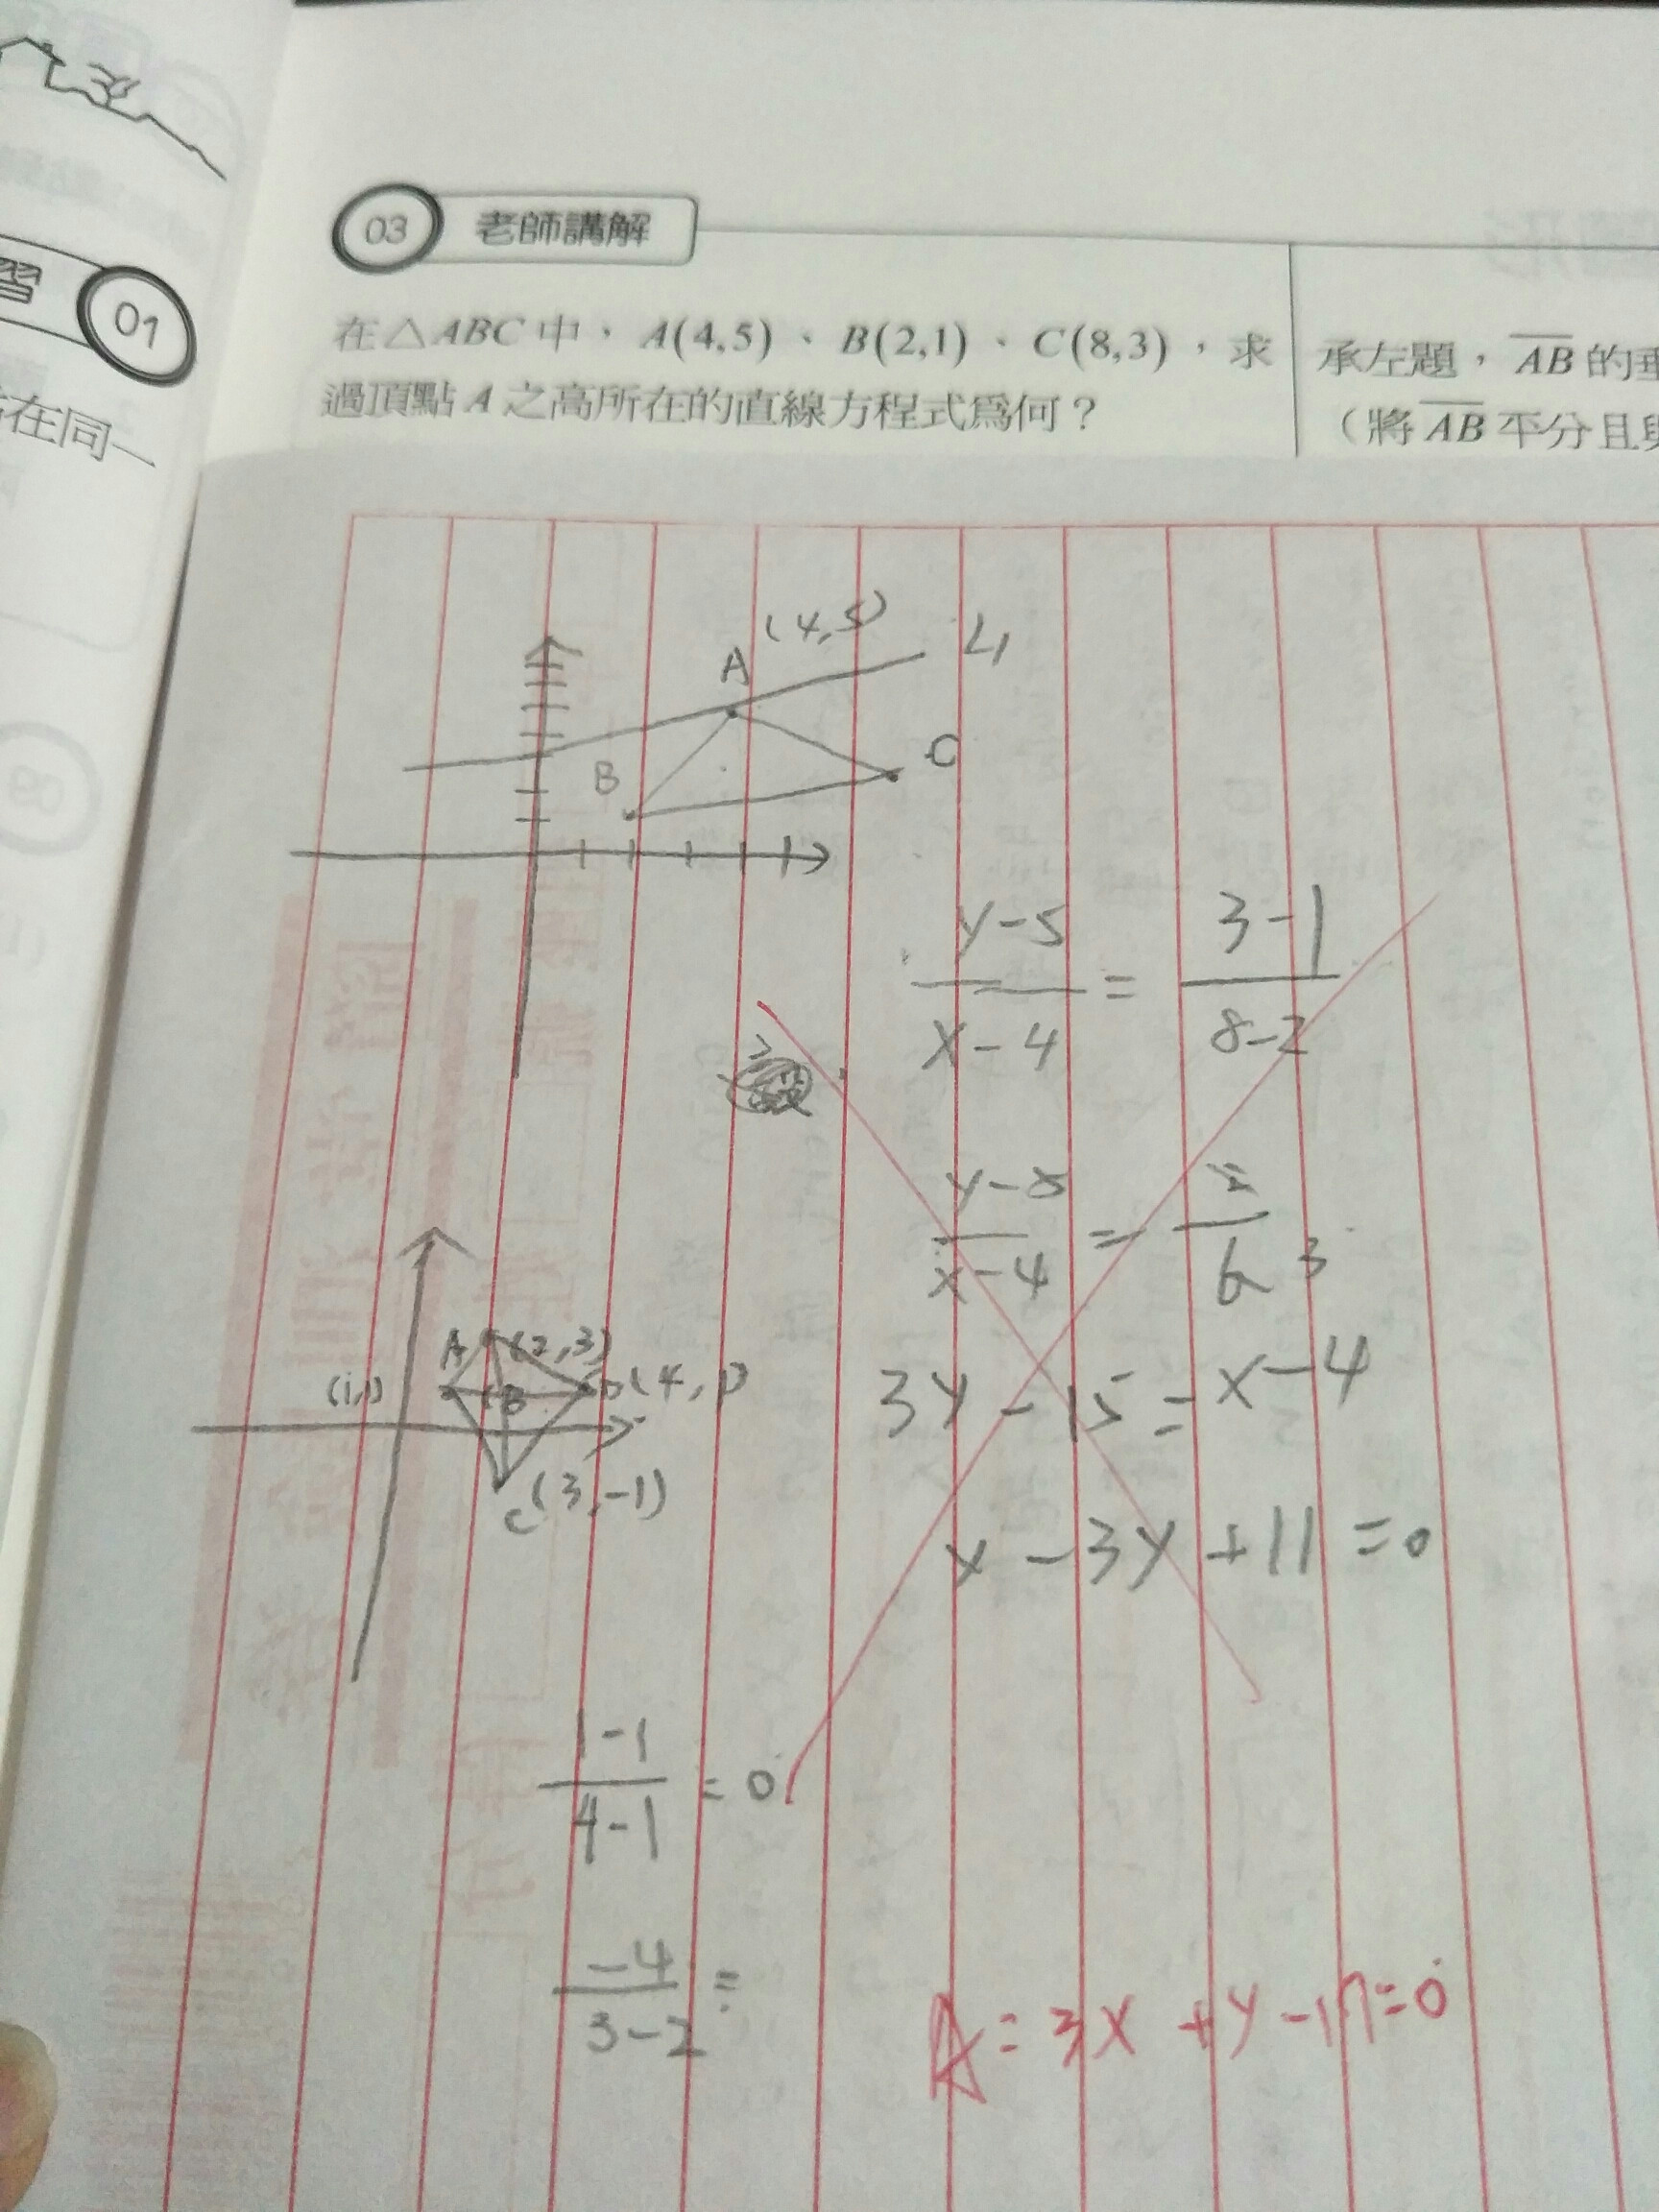 習 01
03 老師講解
在△ABC中，A(4,5)、B(2,1)、C(8,3)，求
過頂點A之高所在的直線方程式為何？
承左題，AB的
（將AB平分且
在同一
A (4,5) L1
B C
y-5/x-4 = 3-1/8-2
y-5/x-4 = 2/6 3
3y-15=x-4
x-3y+11=0
A (2,3)
(1,1) B D(4,1)
C(3,-1)
1-1/4-1 = 0
-4/3-2 =
A= 3x+y-17=0